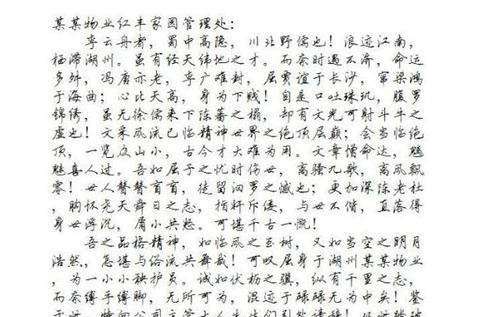 某某物业红丰家园管理处：
李云舟者，蜀中高隐，川北野儒也！浪迹江南，
栖滞湖州。虽有经天纬地之才。而奈时遇不济，命运
多舛，冯唐亦老，李广难封，屈贾谊于长沙，窜梁鸿
于海曲；心比天高，身为下贱！自是口吐珠玑，腹罗
锦绣，虽无徐儒来下陈蕃之榻，却有文光可射斗牛之
虚也！文采风流已临精神世界之绝顶层巅；会当临绝
顶，一览众山小，古今才大难为用。文章憎命达，魑
魅喜人过。吾如屈子之忧时伤世，高骚九歌，离风飘
零！世人瞀瞀盲盲，徒留汨罗之憾也；更加深陈老杜
，胸怀尧天舜日之志，指斥斥侵，与世不偕，直落得
身世浮沉，屑小共怒。可堪千古一慨！
吾之品格精神，如临风之玉树，又如当空之明月
浩然，怎堪与俗流共舞哉！可叹屈身于湖州某某物业
，为一小小秩护员。诚如伏枥之骥，纵有千里之志，
而奈缚手缚脚，无所可为，混迹于碌碌无为中矣！鉴